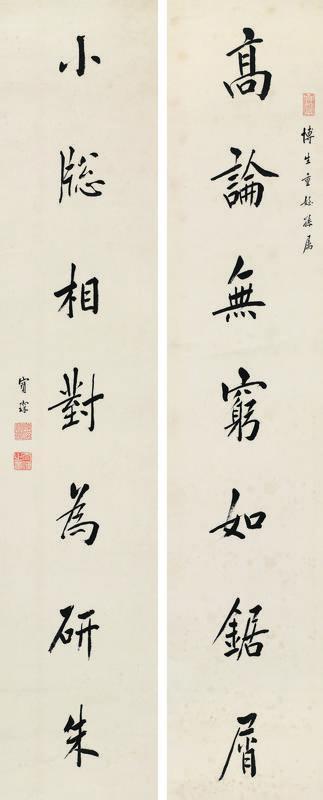 髙論無窮如鋸屑
博生重孫屬
小牕相對為研朱
寶琛